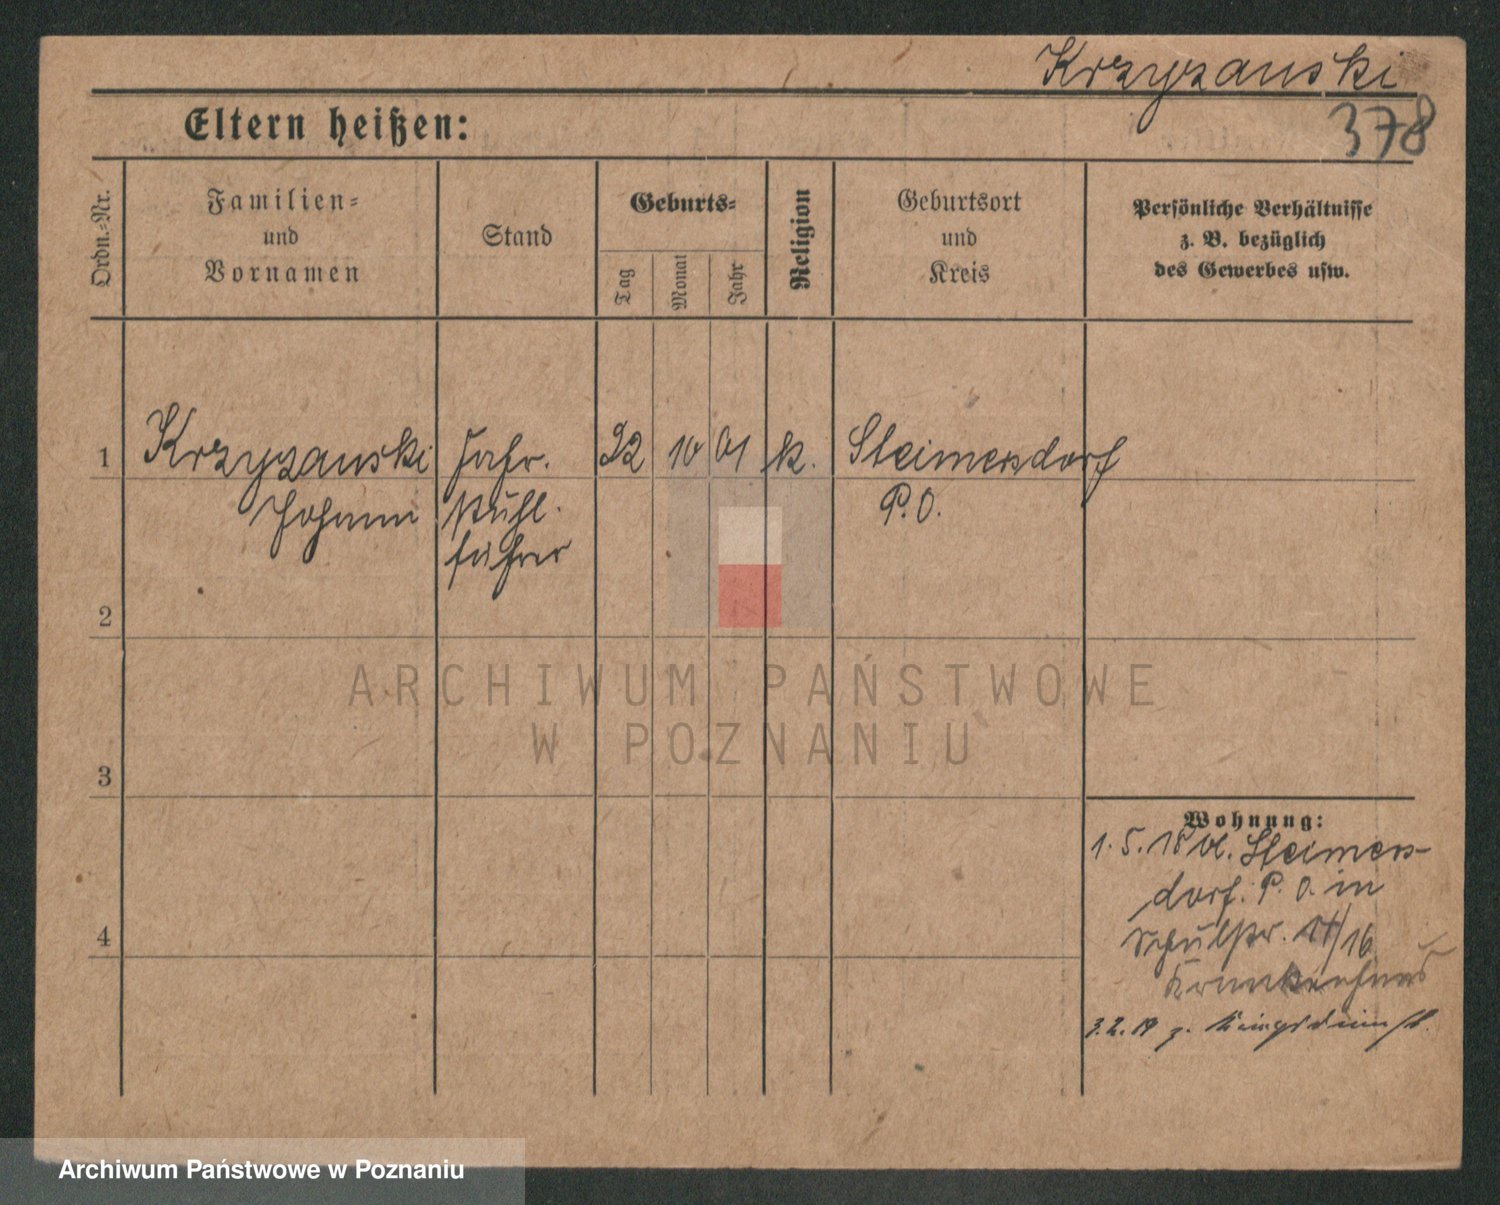 Krzyzanski
378
Eltern heißen:
Ordn.-Nr.
Familien-
und
Vornamen
Stand
Geburts-
Tag
Monat
Jahr
Religion
Geburtsort
und
Kreis
Persönliche Verhältnisse
z. B. bezüglich
des Gewerbes usw.
1
Krzyzanski
Johann
Fahr-
stuhl-
führer
22
10
01
k.
Steimersdorf
P. O.
2
3
4
Wohnung:
1. 5. 18 vl. Steimers-
dorf. P. O. in
Schulstr. 11/16
Krankenhaus
3. 2. 19 z.
ARCHIWUM PAŃSTWOWE
W POZNANIU
Archiwum Państwowe w Poznaniu